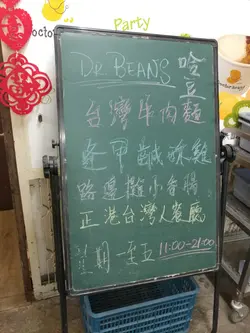 Party
Doctor
DR BEANS 哈豆
台灣牛肉麵
逢甲鹹酥雞
路邊攤小香腸
正港台灣人餐廳
星期一至五 11:00-21:00